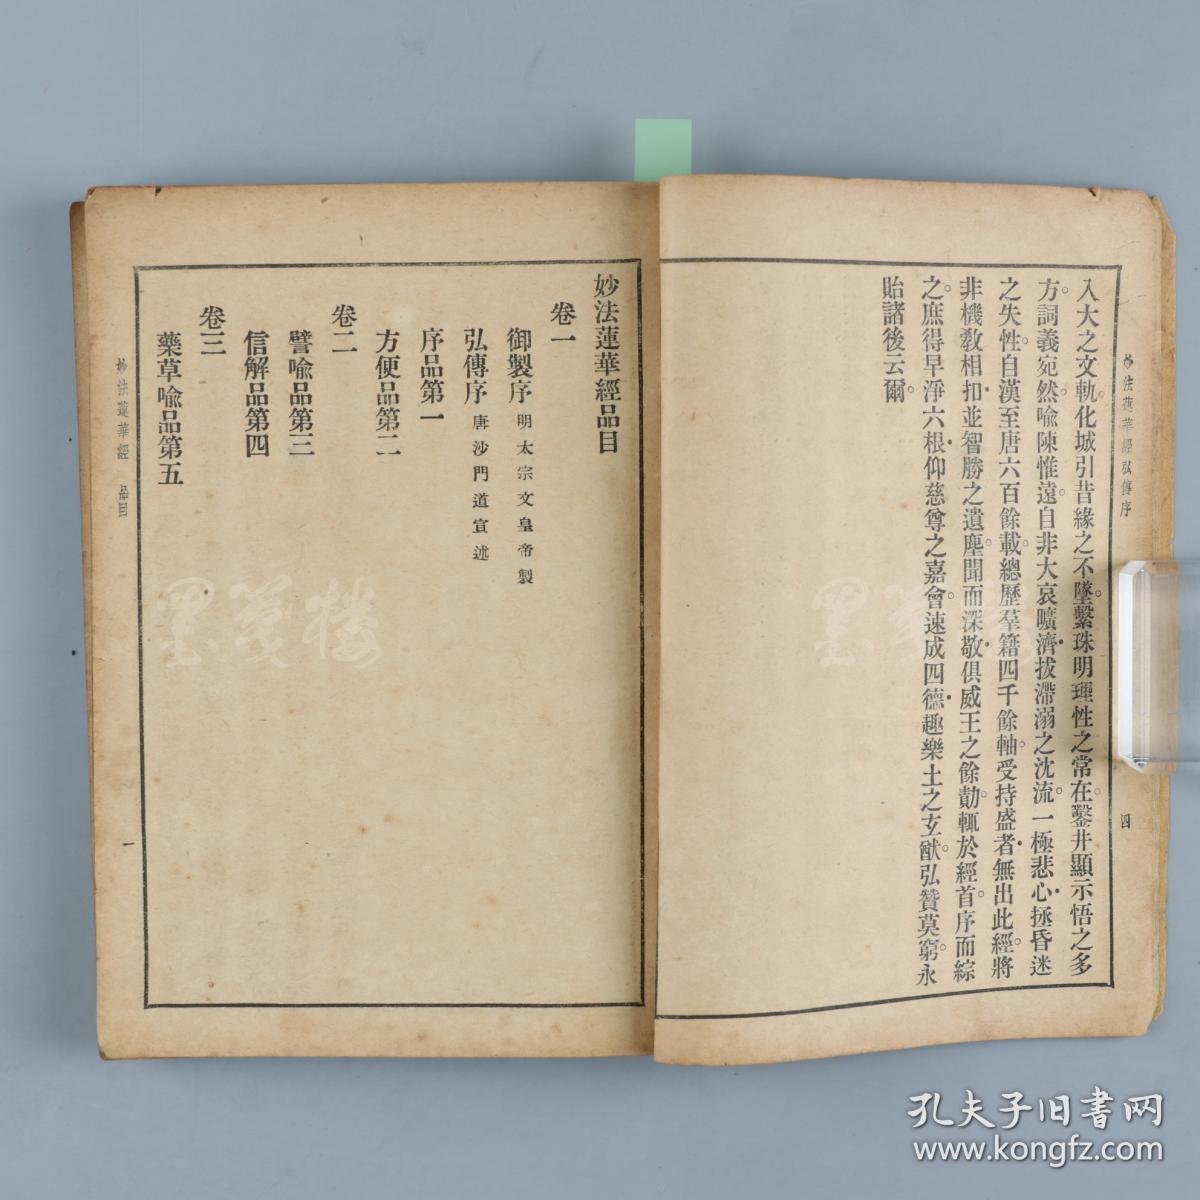 妙法蓮華經弘傳序
四
入大之文軌。化城引昔緣之不墜。繫珠明理性之常在。鑿井顯示悟之多
方。詞義宛然。喻陳惟遠。自非大哀曠濟。拔滯溺之沈流。一極悲心。拯昏迷
之失性。自漢至唐六百餘載。總歷羣籍四千餘軸。受持盛者。無出此經。將
非機敎相扣。並智勝之遺塵。聞而深敬。俱威王之餘勣。輒於經首。序而綜
之。庶得早淨六根。仰慈尊之嘉會。速成四德。趣樂土之玄猷。弘贊莫窮。永
貽諸後云爾。
妙法蓮華經品目
卷一
御製序 明太宗文皇帝製
弘傳序 唐沙門道宣述
序品第一
方便品第二
卷二
譬喻品第三
信解品第四
卷三
藥草喻品第五
妙法蓮華經 品目
一
墨箋樓
墨箋樓
孔夫子旧书网
www.kongfz.com